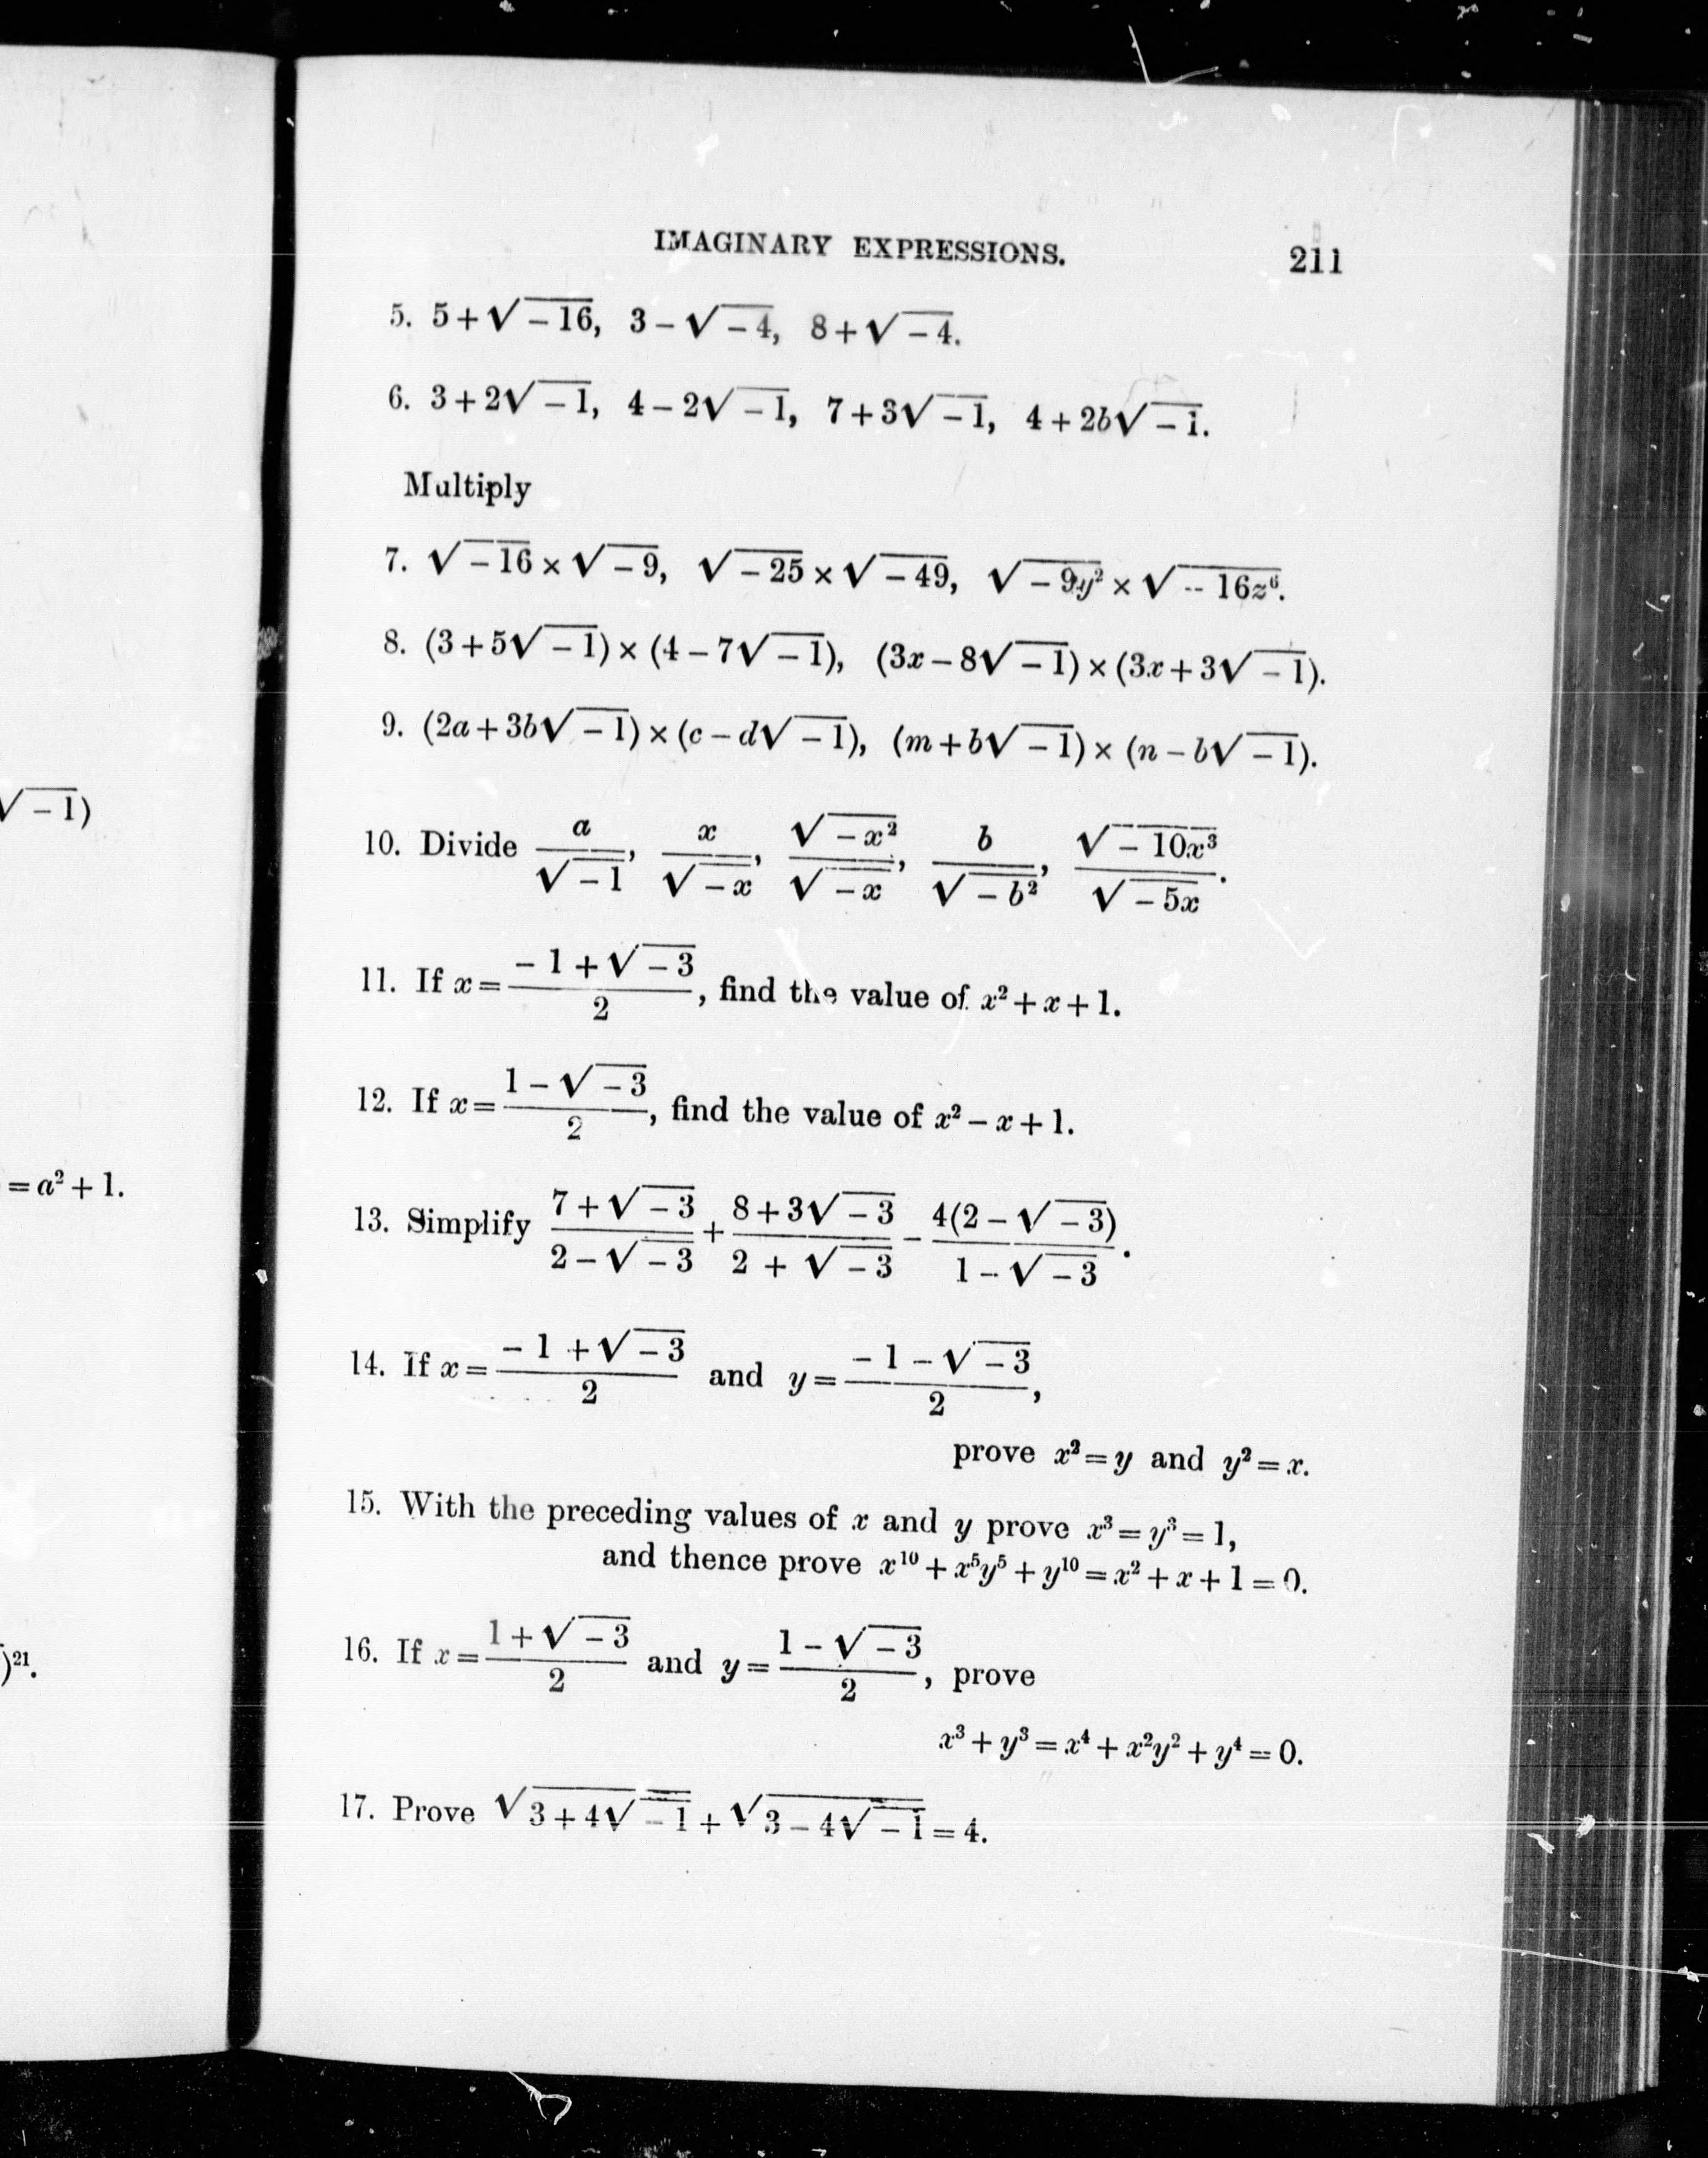 √-1)
= a² + 1.
)²¹.
IMAGINARY EXPRESSIONS. 211
5. 5+√-16, 3-√-4, 8+√-4.
6. 3+2√-1, 4-2√-1, 7+3√-1, 4+2b√-1.
Multiply
7. √-16 × √-9, √-25 × √-49, √-9y² × √-16z⁶.
8. (3+5√-1) × (4-7√-1), (3x-8√-1) × (3x+3√-1).
9. (2a+3b√-1) × (c-d√-1), (m+b√-1) × (n-b√-1).
10. Divide a/√-1, x/√-x, √-x²/√-x, b/√-b², √-10x³/√-5x.
11. If x = (-1+√-3)/2, find the value of x²+x+1.
12. If x = (1-√-3)/2, find the value of x²-x+1.
13. Simplify (7+√-3)/(2-√-3) + (8+3√-3)/(2+√-3) - 4(2-√-3)/(1-√-3).
14. If x = (-1+√-3)/2 and y = (-1-√-3)/2,
prove x²=y and y²=x.
15. With the preceding values of x and y prove x³=y³=1,
and thence prove x¹⁰+x⁵y⁵+y¹⁰=x²+x+1=0.
16. If x = (1+√-3)/2 and y = (1-√-3)/2, prove
x³+y³=x⁴+x²y²+y⁴=0.
17. Prove √(3+4√-1) + √(3-4√-1) = 4.